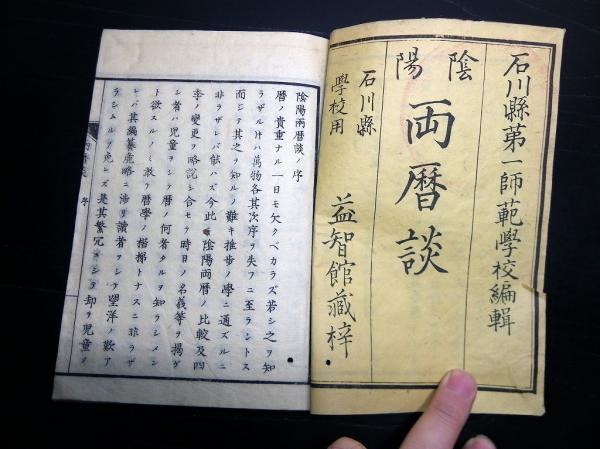 石川縣第一師範學校編輯
陰陽
両暦談
石川縣
學校用
益智館藏梓
陰陽兩暦談ノ序
暦ノ貴重ナル一日モ欠クベカラズ若シ之ヲ知
ラザル片ハ萬物各其次序ヲ失フニ至ラントス
而シテ其之ヲ知ルノ難キ推歩ノ學ニ通ズルニ
非ラザレバ猷ハズ今此ニ陰陽両暦ノ比較及四
季ノ變更ヲ略説シ合セテ時日ノ名義等ヲ掲ゲ
シ者ハ児童ヲシテ暦ノ何者タルヲ知ラシメン
ト欲スルノミ敢テ暦學ノ楷梯トナスニ非ラザ
レバ其編纂麁略ニ渉リ讀者ヲシテ望洋ノ歎ア
ラシムルヲ免レズ是其繁冗ニシテ却ヲ児童ノ
序